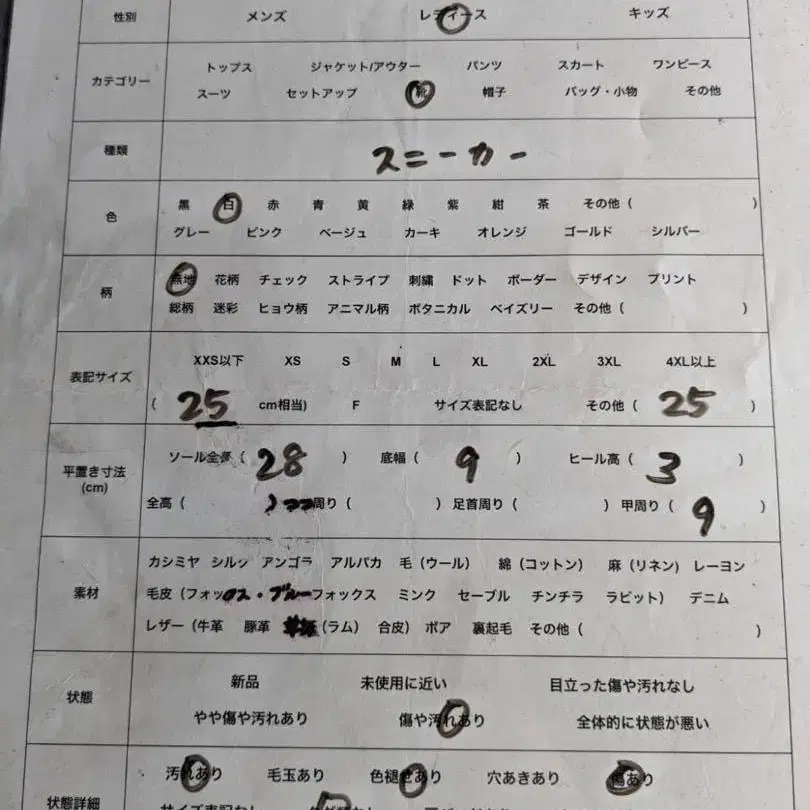 性別 メンズ レディース キッズ
カテゴリー
トップス ジャケット/アウター パンツ スカート ワンピース
スーツ セットアップ 靴 帽子 バッグ・小物 その他
種類 スニーカー
色
黒 白 赤 青 黄 緑 紫 紺 茶 その他 ( )
グレー ピンク ベージュ カーキ オレンジ ゴールド シルバー
柄
無地 花柄 チェック ストライプ 刺繍 ドット ボーダー デザイン プリント
総柄 迷彩 ヒョウ柄 アニマル柄 ボタニカル ペイズリー その他 ( )
表記サイズ
XXS以下 XS S M L XL 2XL 3XL 4XL以上
( 25 cm相当) F サイズ表記なし その他 ( 25 )
平置き寸法
(cm)
ソール全長 ( 28 ) 底幅 ( 9 ) ヒール高 ( 3 )
全高 ( ) 周り ( ) 足首周り ( ) 甲周り ( 9 )
素材
カシミヤ シルク アンゴラ アルパカ 毛 (ウール) 綿 (コットン) 麻 (リネン) レーヨン
毛皮 (フォックス・ブルーフォックス ミンク セーブル チンチラ ラビット) デニム
レザー (牛革 豚革 (ラム) 合皮) ボア 裏起毛 その他 ( )
状態
新品 未使用に近い 目立った傷や汚れなし
やや傷や汚れあり 傷や汚れあり 全体的に状態が悪い
状態詳細
汚れあり 毛玉あり 色褪せあり 穴あきあり 傷あり